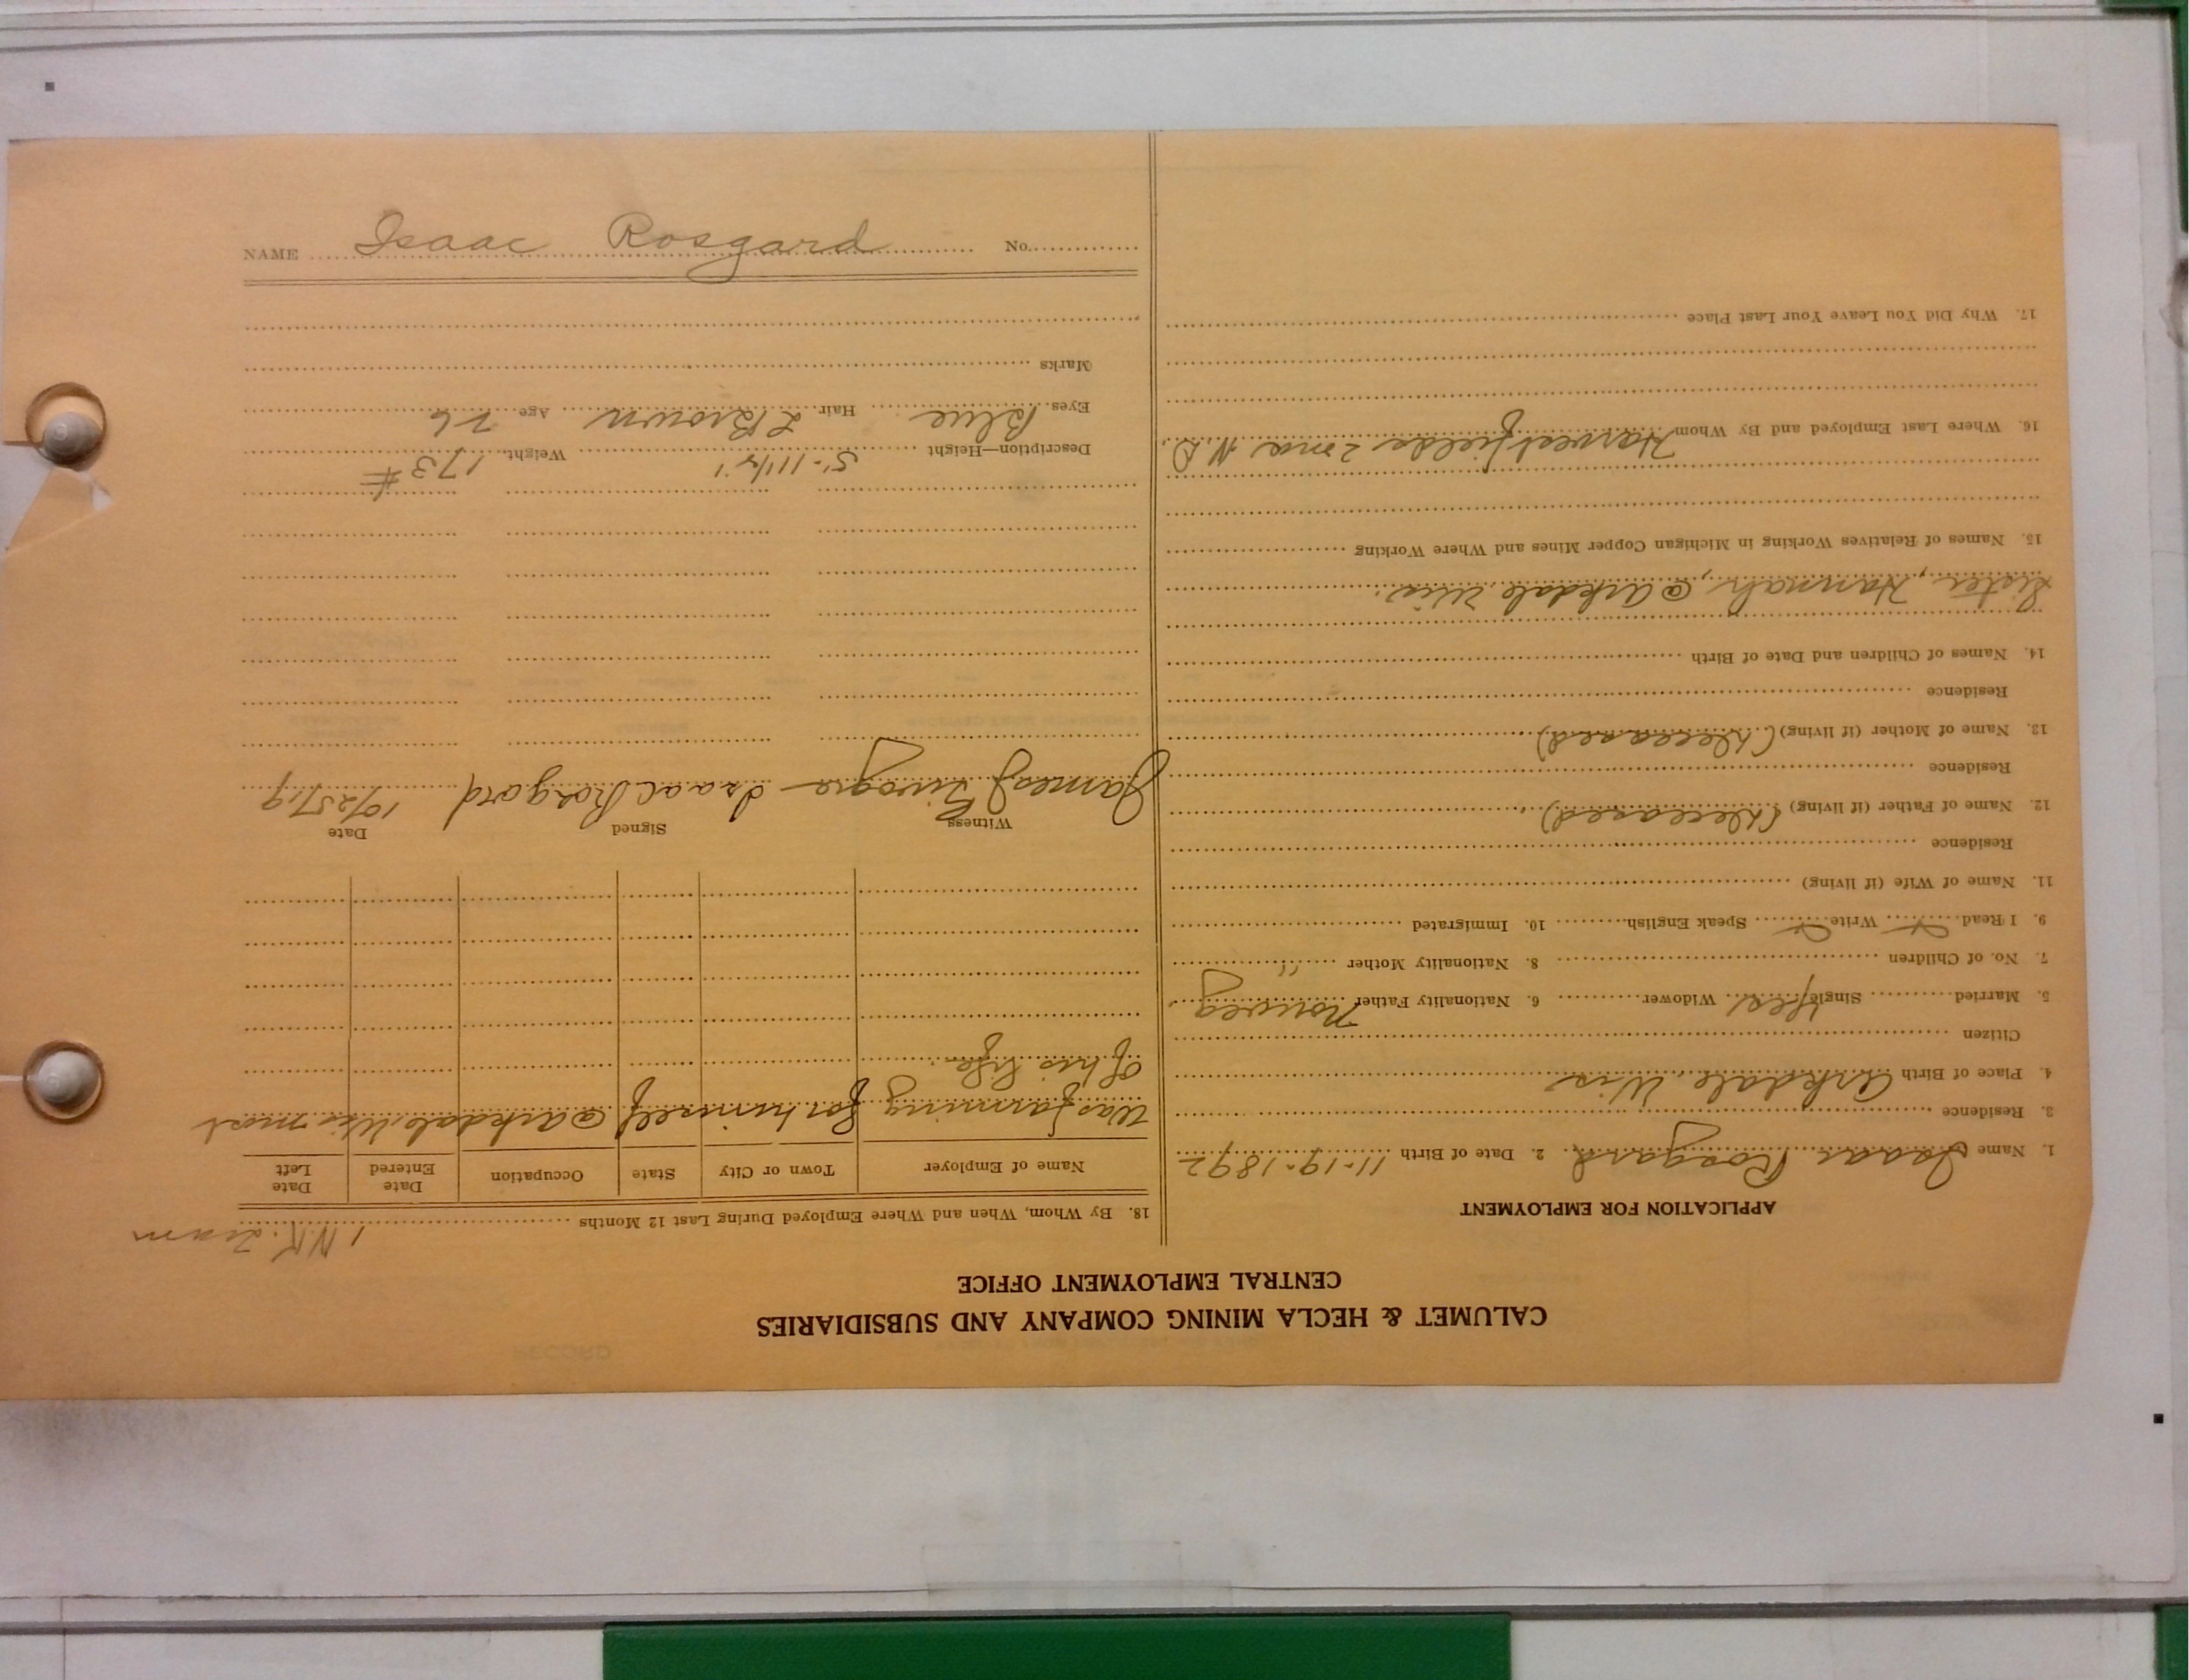 CALUMET & HECLA MINING COMPANY AND SUBSIDIARIES
CENTRAL EMPLOYMENT OFFICE
APPLICATION FOR EMPLOYMENT
1. Name Isaac Rosgard. 2. Date of Birth 11-19-1892
3. Residence
4. Place of Birth Arkdale Wis
Citizen
5. Married Single Yes Widower 6. Nationality Father Norweg
7. No. of Children 8. Nationality Mother "
9. I Read Write Speak English 10. Immigrated
11. Name of Wife (if living)
Residence
12. Name of Father (if living) (Deceased)
Residence
13. Name of Mother (if living) (Deceased)
Residence
14. Names of Children and Date of Birth
Sister, Hannah, @ Arkdale Wis.
15. Names of Relatives Working in Michigan Copper Mines and Where Working
16. Where Last Employed and By Whom Harvest fields N.D.
17. Why Did You Leave Your Last Place
N.K.
18. By Whom, When and Where Employed During Last 12 Months
Name of Employer Town or City State Occupation Date Entered Date Left
Was farming for himself @ Arkdale Wis most
of his life.
Witness Signed Date
James Isaac Rosgard 10/25/19
Description—Height 5-11 1/2" Weight 173 #
Eyes Blue Hair L Brown Age 26
Marks
NAME Isaac Rosgard No.